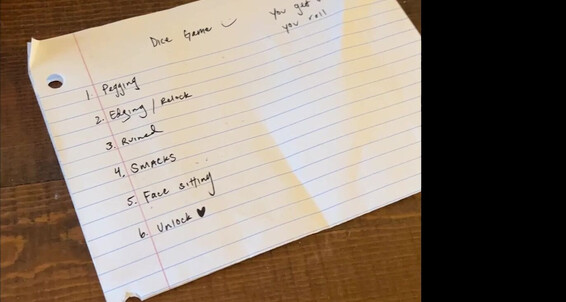 Dice Game
You get
you roll
1. Pegging
2. Edging / Relock
3. Ruined
4. Smacks
5. Face sitting
6. Unlock ♥